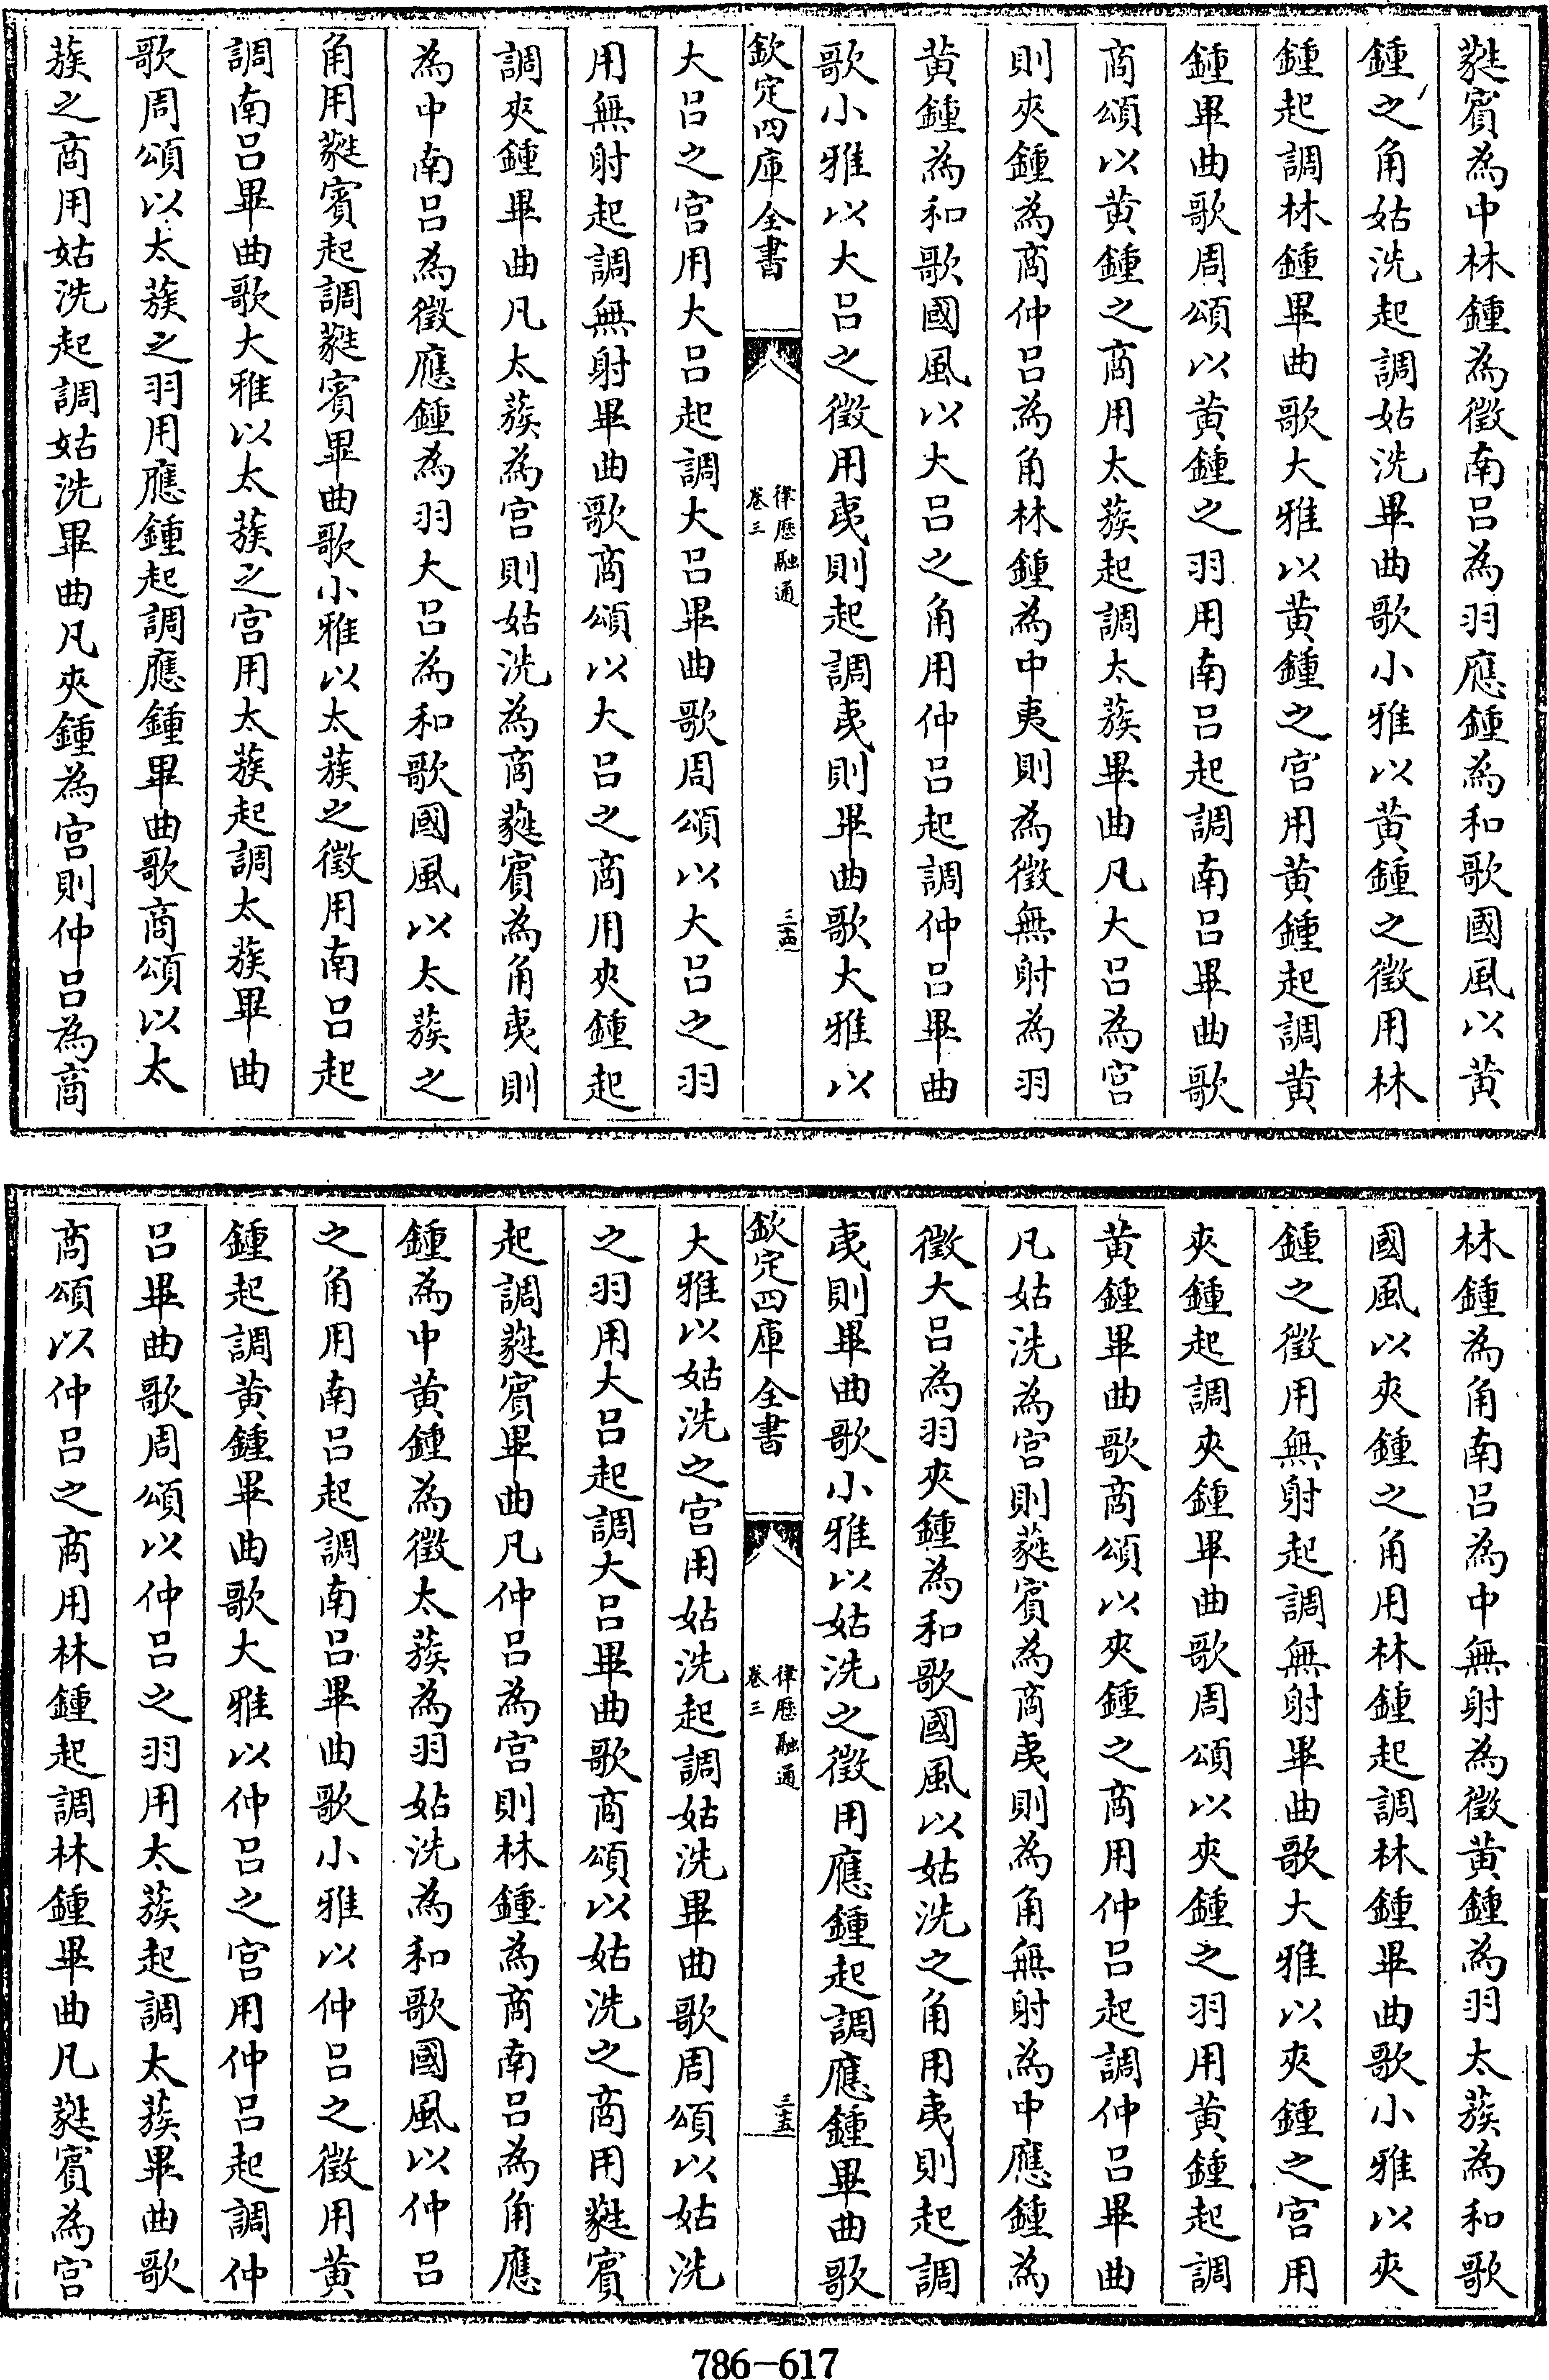 蕤賓為中林鍾為徵南呂為羽應鍾為和歌國風以黃
鍾之角姑洗起調姑洗畢曲歌小雅以黃鍾之徵用林
鍾起調林鍾畢曲歌大雅以黃鍾之宮用黃鍾起調黃
鍾畢曲歌周頌以黃鍾之羽用南呂起調南呂畢曲歌
商頌以黃鍾之商用太蔟起調太蔟畢曲凡大呂為宮
則夾鍾為商仲呂為角林鍾為中夷則為徵無射為羽
黃鍾為和歌國風以大呂之角用仲呂起調仲呂畢曲
歌小雅以大呂之徵用夷則起調夷則畢曲歌大雅以
欽定四庫全書
律歷融通
卷三
三十四
大呂之宮用大呂起調大呂畢曲歌周頌以大呂之羽
用無射起調無射畢曲歌商頌以大呂之商用夾鍾起
調夾鍾畢曲凡太蔟為宮則姑洗為商蕤賓為角夷則
為中南呂為徵應鍾為羽大呂為和歌國風以太蔟之
角用蕤賓起調蕤賓畢曲歌小雅以太蔟之徵用南呂起
調南呂畢曲歌大雅以太蔟之宮用太蔟起調太蔟畢曲
歌周頌以太蔟之羽用應鍾起調應鍾畢曲歌商頌以太
蔟之商用姑洗起調姑洗畢曲凡夾鍾為宮則仲呂為商
林鍾為角南呂為中無射為徵黃鍾為羽太蔟為和歌
國風以夾鍾之角用林鍾起調林鍾畢曲歌小雅以夾
鍾之徵用無射起調無射畢曲歌大雅以夾鍾之宮用
夾鍾起調夾鍾畢曲歌周頌以夾鍾之羽用黃鍾起調
黃鍾畢曲歌商頌以夾鍾之商用仲呂起調仲呂畢曲
凡姑洗為宮則蕤賓為商夷則為角無射為中應鍾為
徵大呂為羽夾鍾為和歌國風以姑洗之角用夷則起調
夷則畢曲歌小雅以姑洗之徵用應鍾起調應鍾畢曲歌
欽定四庫全書
律歷融通
卷三
三十五
大雅以姑洗之宮用姑洗起調姑洗畢曲歌周頌以姑洗
之羽用大呂起調大呂畢曲歌商頌以姑洗之商用蕤賓
起調蕤賓畢曲凡仲呂為宮則林鍾為商南呂為角應
鍾為中黃鍾為徵太蔟為羽姑洗為和歌國風以仲呂
之角用南呂起調南呂畢曲歌小雅以仲呂之徵用黃
鍾起調黃鍾畢曲歌大雅以仲呂之宮用仲呂起調仲
呂畢曲歌周頌以仲呂之羽用太蔟起調太蔟畢曲歌
商頌以仲呂之商用林鍾起調林鍾畢曲凡蕤賓為宮
786-617